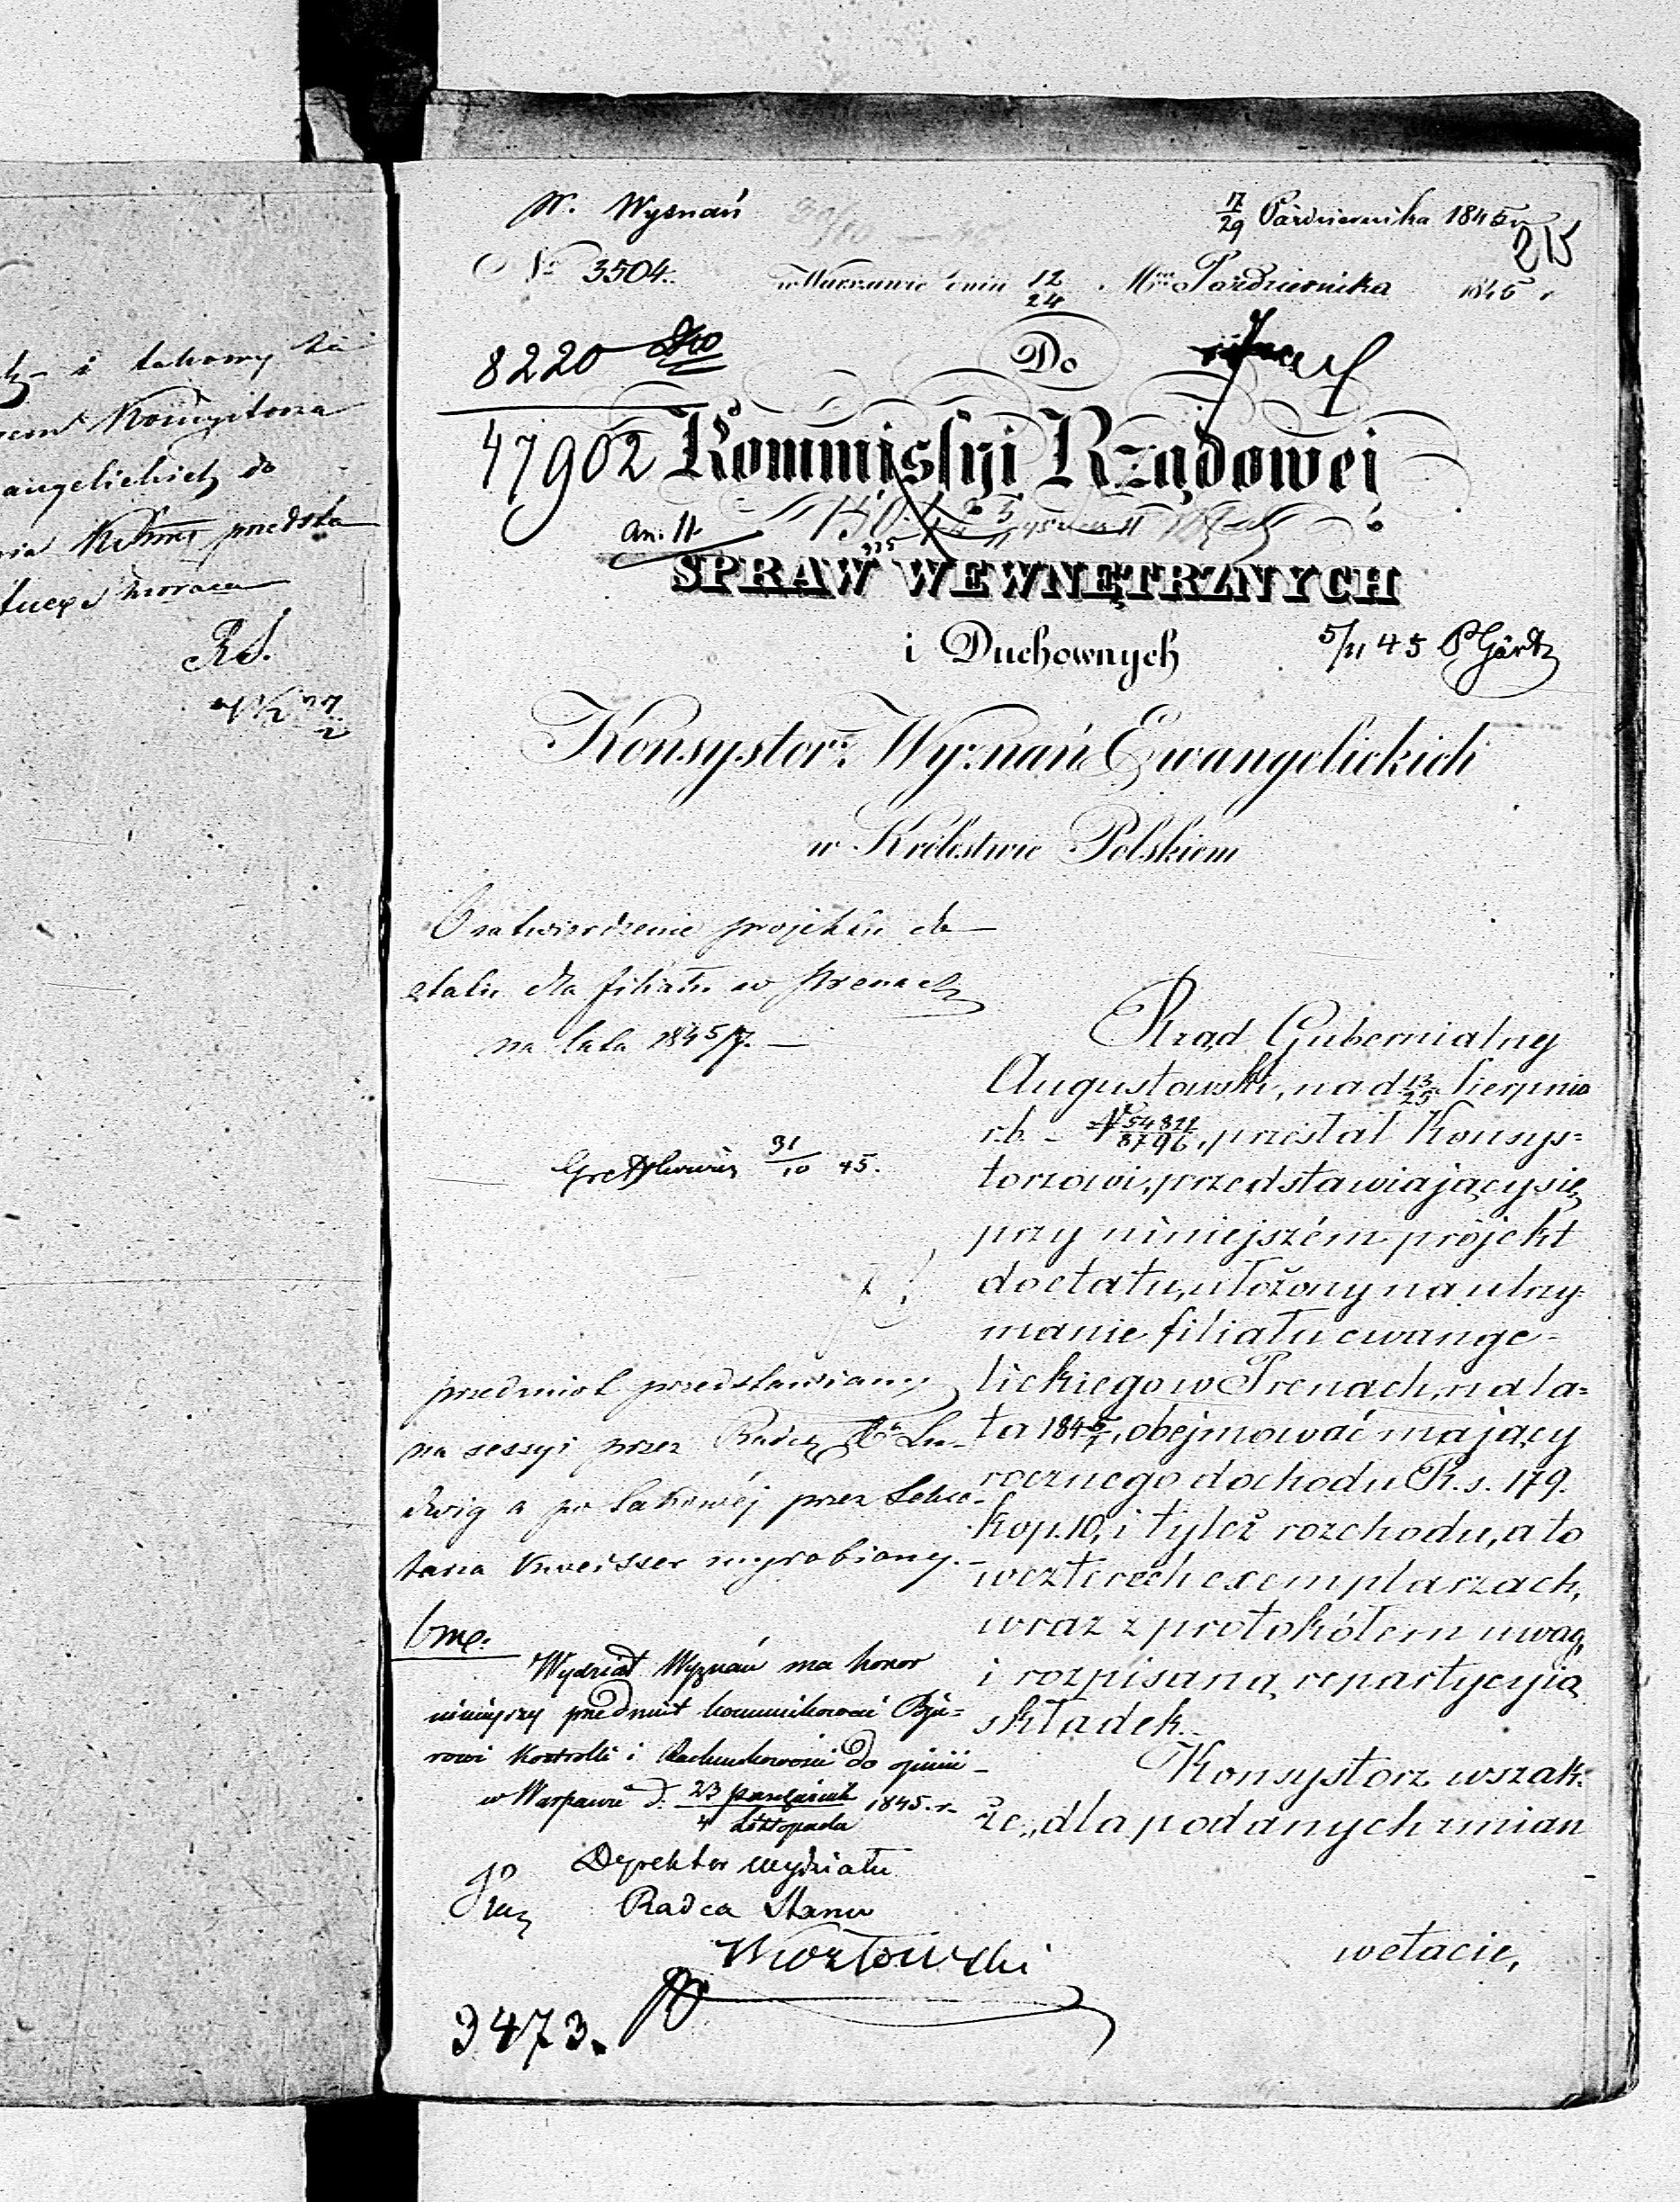 i takowy
Konsystorza
angelickich do
przedsta
R.S.
W. Wyznań
17/29 Października 1845 r.
215
No 3504.
w Warszawie dnia 12/24 Mca Października 1845 r.
8220
Do
47902
Kommissyi Rządowej
an: 11
SPRAW WEWNĘTRZNYCH
i Duchownych
5/11 45
Konsystorz Wyznań Ewangelickich
w Królestwie Polskiem
O zatwierdzenie projektu do
etatu dla filiału w Prenach
na lata 1845/7. —
31/10 45.
przedmiot przedstawiany
na sessyi przez Radcę Lu-
dwig a po takowéj przez Sekre-
tarza Kneisser wyrobiony. —
Wydział Wyznań ma honor
niniejszy przedmiot kommunikować Bju=
rowi Kontrolli i Rachunkowości do opinii —
w Warszawie d. 23 Października / 4 Listopada 1845. r.
Dyrektor wydziału
Radca Stanu
3473.
Rząd Gubernialny
Augustowski, na d 13/25 Sierpnia
r. b. — N 54821/8796, przesłał Konsys=
torzowi, przedstawiający się
przy niniejszém projekt
do etatu, ułożony na utrzy=
manie filiału ewange=
lickiego w Prenach, na la=
ta 1845/7, obejmować mający
rocznego dochodu R. s. 179.
kop. 10, i tyleż rozchodu, a to
w czterech exemplarzach,
wraz z protokółem uwag,
i rozpisaną repartycyią
składek. —
Konsystorz wszak=
że, dla podanych zmian
w etacie,